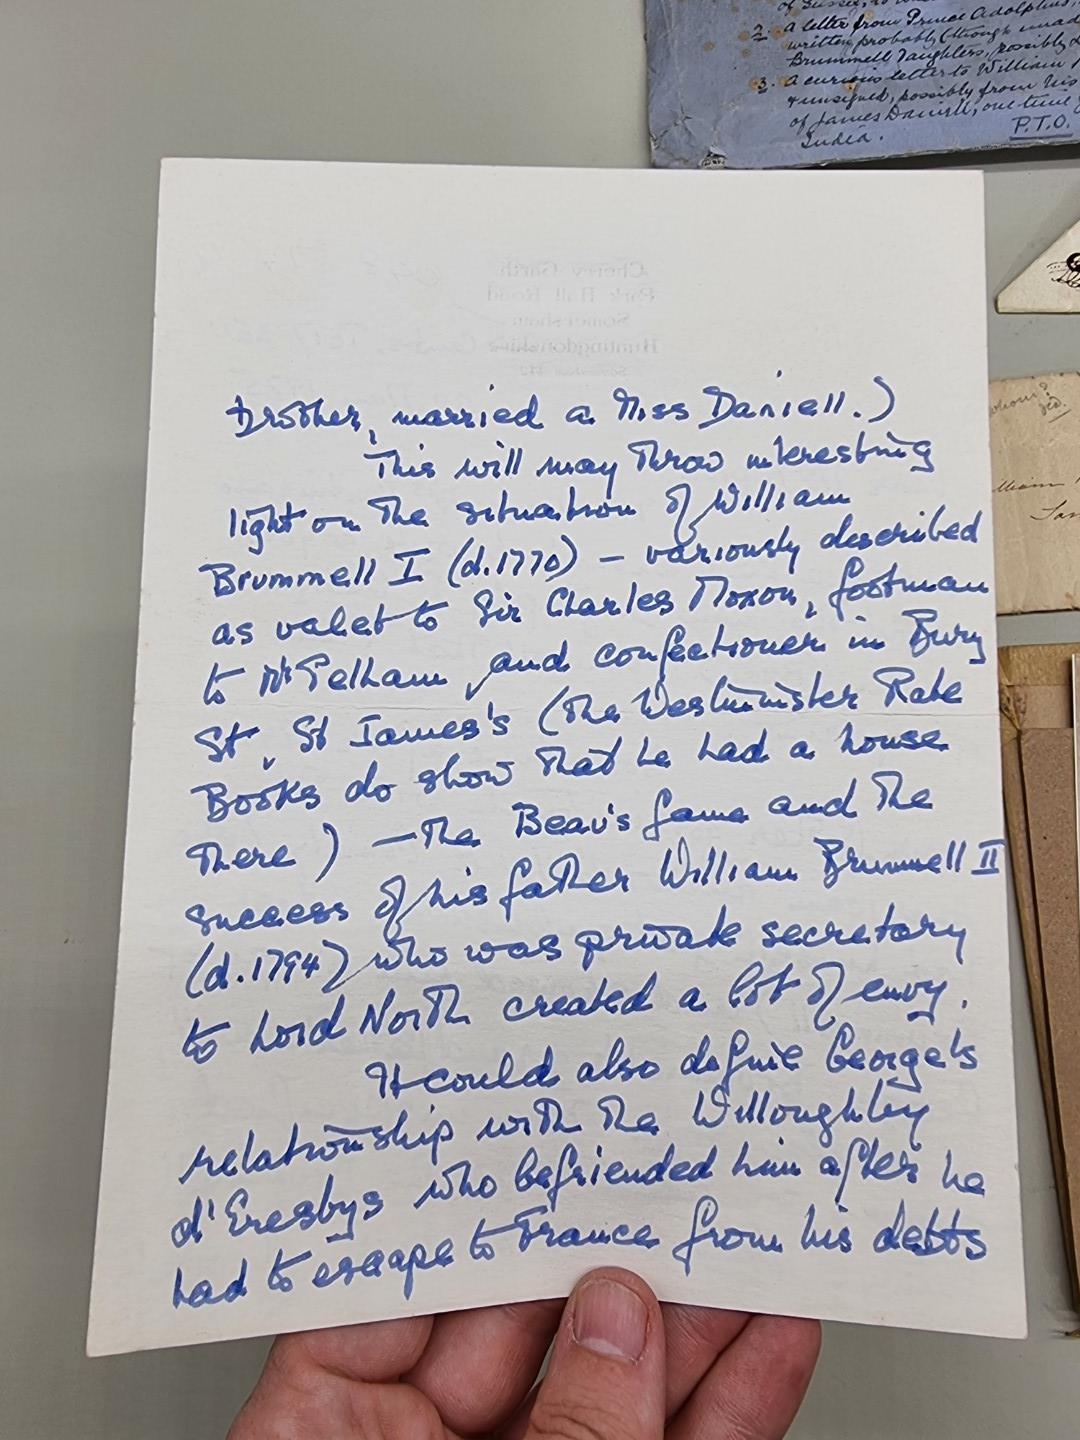 of Sussex, to
2. a letter from Prince Adolphus,
written probably (though unad
Brummell daughters, possibly
3. a curious letter to William
& unsigned, possibly from his
of James Daniell, one time
India.
P.T.O.
Cherry Garth
Park Hall Road
Somersham
Huntingdonshire
brother, married a Miss Daniell.)
This will may throw interesting
light on the situation of William
Brummell I (d.1770) – variously described
as valet to Sir Charles Moxon, footman
to Mr Pelham, and confectioner in Bury
St, St James's (the Westminster Rate
Books do show that he had a house
there) – the Beau's fame and the
success of his father William Brummell II
(d.1794) who was private secretary
to Lord North created a lot of envy.
It could also define George's
relationship with the Willoughby
d'Eresbys who befriended him after he
had to escape to France from his debts
whom?